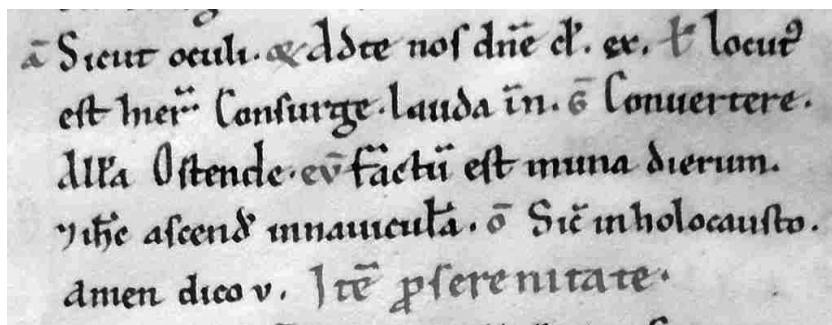 ā Sicut oculi. & Adte nos dn̄e cl'. ex. ł locut⁹
est hier̄. Consurge. lauda in̄. G̅ Conuertere.
All'a Ostende. eṽ factū est inuna dierum.
⁊ ih̄c ascend' innauicul'a. ō Sic̄ inholocausto.
amen dico v. Itē ꝓserenitate.